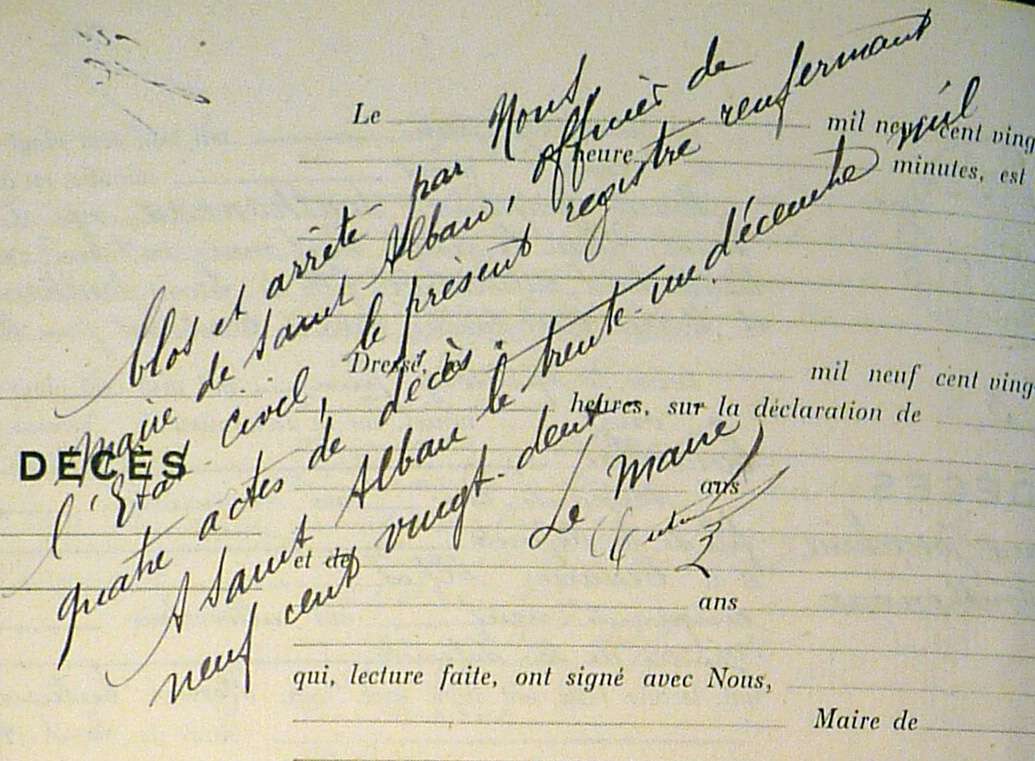 Le mil neuf cent ving
heure minutes, est
Clos et arrêté par Nous,
Maire de Saint Alban, officier de
l'Etat civil le présent registre renfermant
quatre actes de décès.
A Saint Alban le trente-un décembre mil
neuf cent vingt-deux
Le Maire
Dressé, le mil neuf cent ving
heures, sur la déclaration de
DÉCÈS
ans
et de
ans
qui, lecture faite, ont signé avec Nous,
Maire de